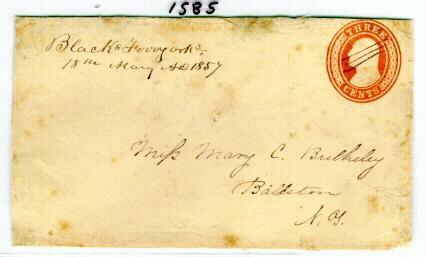 1585
THREE
CENTS
Black &
18th May AD 1857
Miss Mary C. Bulkeley
Ballston
N. Y.